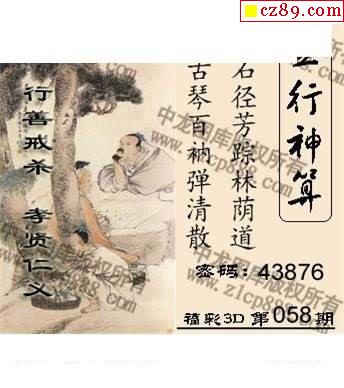 cz89.com
行神算
石径芳踪林荫道
古琴百衲弹清散
密码：43876
福彩3D 第058期
行善戒杀 孝贤仁义
中龙图库版权所有